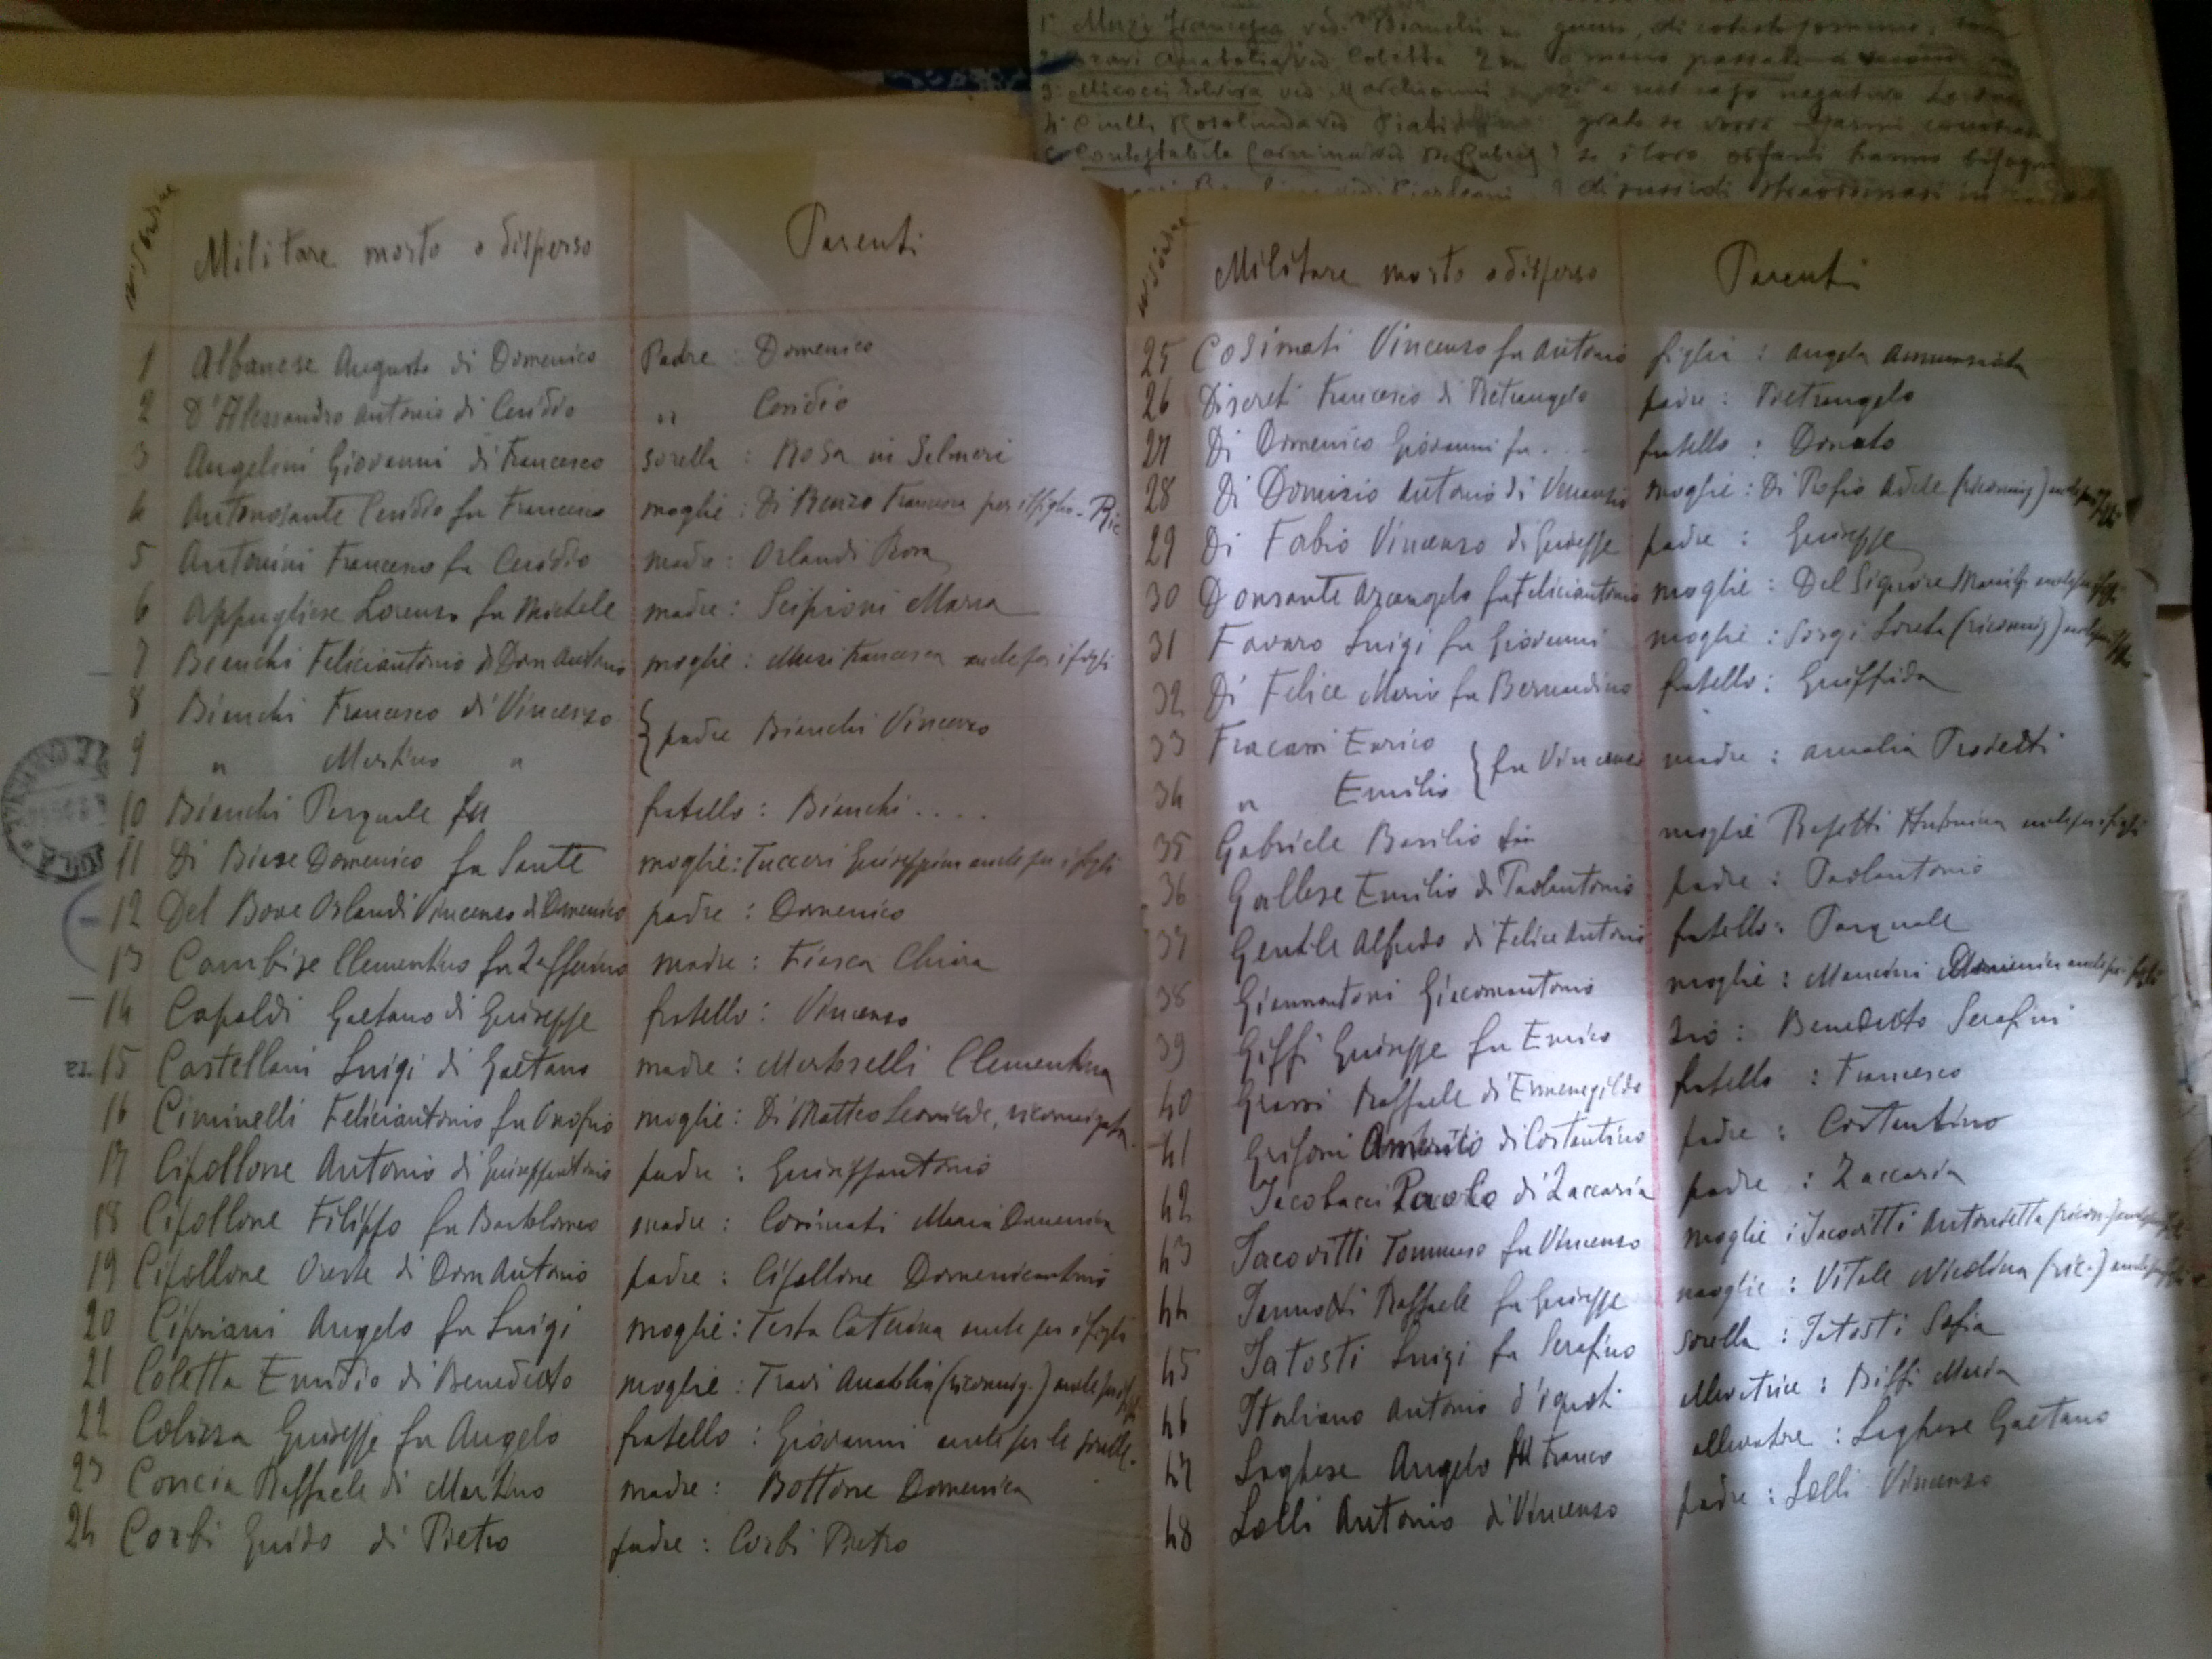 1° Muzi Francesca ved. Bianchi
Coletta
4° Ciulli Rosalinda ved.
Contestabile
N° d'ordine
Militare morto o disperso
Parenti
1 Albanese Augusto di Domenico Padre : Domenico
2 D'Alessandro Antonio di Cesidio " Cesidio
3 Angelini Giovanni di Francesco sorella : Rosa in Salmeri
4 Antonosante Cesidio fu Francesco moglie : Di Renzo Francesca per il figlio - Ric
5 Antonini Francesco fu Cesidio madre : Orlandi Rosa
6 Appugliese Lorenzo fu Michele madre : Scipioni Maria
7 Bianchi Feliciantonio di Domantonio moglie : Muzi Francesca anche per i figli
8 Bianchi Francesco di Vincenzo
9 " Martino " } padre Bianchi Vincenzo
10 Bianchi Pasquale fu fratello : Bianchi ....
11 Di Biase Domenico fu Sante moglie : Tucceri Giuseppina anche per i figli
12 Del Bove Orlandi Vincenzo di Domenico padre : Domenico
13 Cambise Clementino fu Zefferino madre : Fiasca Chiara
14 Capaldi Gaetano di Giuseppe fratello : Vincenzo
15 Castellani Luigi di Gaetano madre : Martorelli Clementina
16 Ciminelli Feliciantonio fu Onofrio moglie : Di Matteo Leonilde, riconiugata
17 Cipollone Antonio di Giuseppantonio padre : Giuseppantonio
18 Cipollone Filippo fu Bartolomeo madre : Cosimati Maria Domenica
19 Cipollone Oreste di Domantonio padre : Cipollone Domenicantonio
20 Cipriani Angelo fu Luigi moglie : Testa Caterina anche per i figli
21 Coletta Emidio di Benedetto moglie : Travi Anatolia (riconiug.) anche per i figli
22 Colizza Giuseppe fu Angelo fratello : Giovanni anche per le sorelle.
23 Concia Raffaele di Martino madre : Bottone Domenica
24 Corbi Guido di Pietro padre : Corbi Pietro
N° d'ordine
Militare morto o disperso
Parenti
25 Cosimati Vincenzo fu Antonio figlia : Angela Annunziata
26 Discreti Francesco di Pietrangelo padre : Pietrangelo
27 Di Domenico Giovanni fu ... fratello : Donato
28 Di Domizio Antonio di Venanzio moglie : Di Adele (riconiug) anche per i figli
29 Di Fabio Vincenzo di Giuseppe padre : Giuseppe
30 Donsante Arcangelo fu Feliciantonio moglie : Del Signore anche per i figli
31 Favaro Luigi fu Giovanni moglie : Sorgi Loreta (riconiug) anche per i figli
32 Di Felice Mario fu Bernardino fratello : Giuffrida
33 Fracassi Enrico
34 " Emilio } fu Vincenzo madre : Amalia Trodetti
35 Gabriele Basilio fu moglie anche per i figli
36 Gallese Emilio di Paolantonio padre : Paolantonio
37 Gentile Alfredo di Felice Antonio fratello : Pasquale
38 Giammantoni Giacomantonio moglie : Mancini Domenica anche per i figli
39 Giffi Giuseppe fu Enrico zio : Benedetto Serafini
40 Grassi Raffaele di Ermenegildo fratello : Francesco
41 Grifoni Amerito di Costantino padre : Costantino
42 Iacobacci Paolo di Zaccaria padre : Zaccaria
43 Iacovitti Tommaso fu Vincenzo moglie : Iacovitti Antonietta
44 Iannotti Raffaele fu Giuseppe moglie : Vitale Nicolina (ric.) anche per i figli
45 Tatosti Luigi fu Serafino sorella : Tatosti Sofia
46 Italiano Antonio d'ignoti allevatrice : Biffi Maria
47 Laghese Angelo fu Franco allevatore : Laghese Gaetano
48 Lolli Antonio di Vincenzo padre : Lolli Vincenzo